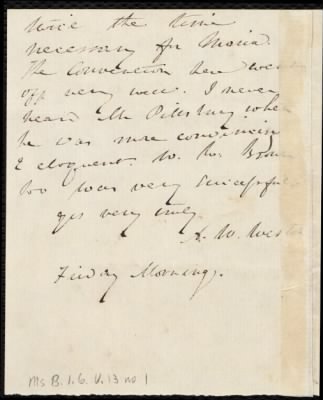 twice the time
necessary for Maria.
The Convention here went
off very well. I never
heard Mr Pillsbury when
he was more convincing
& eloquent. W. W. Brown
too was very successful
yrs very truly
A. W. Weston
Friday Morning.
Ms B.1.6 V.13 no 1